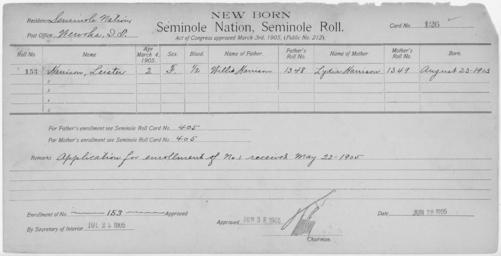 NEW BORN
Residence Seminole Nation
Seminole Nation, Seminole Roll.
Card No. 126
Post Office Wewoka, I.T.
Act of Congress approved March 3rd, 1905, (Public No. 212).
Roll No. Name Age March 4, 1905. Sex. Blood. Name of Father. Father's Roll No. Name of Mother Mother's Roll No. Born.
153 Harrison, Lester 2 F. 1/2 Willie Harrison 1348 Lydia Harrison 1349 August 22-1903
For Father's enrollment see Seminole Roll Card No. 405
For Mother's enrollment see Seminole Roll Card No. 405
Remarks: Application for enrollment of No. 1 received May 22-1905
Enrollment of No. 153 Approved
Approved 1905
Date JUN 1905
By Secretary of Interior 1905
Chairman